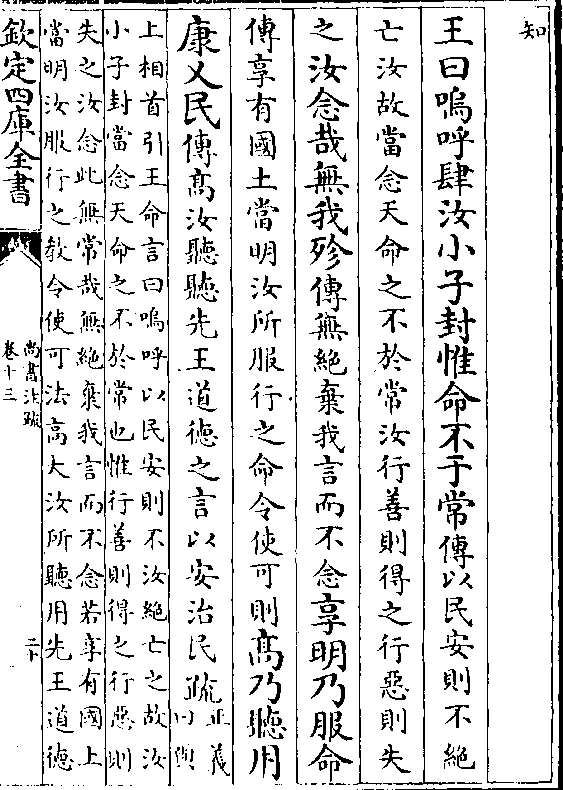 知
王曰嗚呼肆汝小子封惟命不于常傳以民安則不絶
亡汝故當念天命之不於常汝行善則得之行惡則失
之汝念哉無我殄傳無絶棄我言而不念享明乃服命
傳享有國土當明汝所服行之命令使可則高乃聽用
康乂民傳高汝聽聽先王道德之言以安治民疏正義
曰與
上相首引王命言曰嗚呼以民安則不汝絶亡之故汝
小子封當念天命之不於常也惟行善則得之行惡則
失之汝念此無常哉無絶棄我言而不念若享有國土
當明汝服行之教令使可法高大汝所聽用先王道德
欽定四庫全書
尚書注疏
卷十三